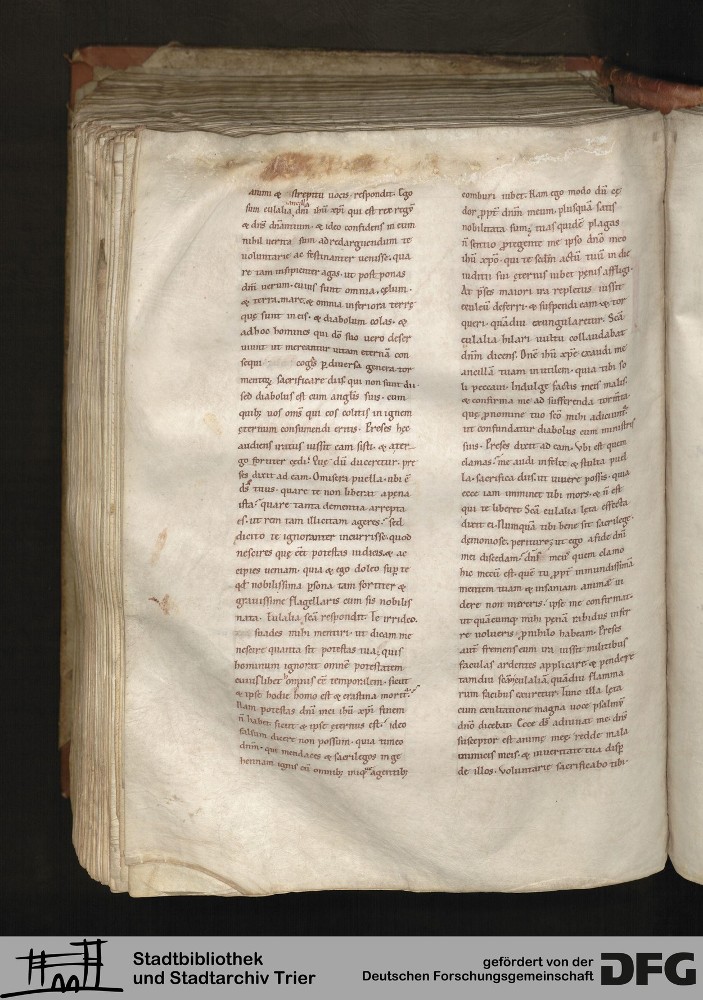 animi & strepitu uocis. respondit. Ego
sum eulalia ancilla dñi ihũ xp̃i qui est rex regũ
& dñs dñantium. & ideo confidens in eum
nihil uerita sum ad redarguendum te
uoluntarie ac festinanter uenisse. qua
re tam insipienter agas. ut post ponas
dñm uerum. cuius sunt omnia. cęlum.
& terra. mare. & omnia inferiora terrę
quę sunt in eis. & diabolum colas. &
adhoc homines qui dõ suo uero deser
uiunt ut mereantur uitam eternã con
sequi cogis p diuersa genera tor
mentoꝝ sacrificare diis qui non sunt dii.
sed diabolus est cum angl̃is suis. cum
quibꝫ uos om̃s qui eos colitis in ignem
ęternum consumendi eritis. Preses hęc
audiens iratus iussit eam sisti. & a ter
go fortiter cędi. Quę dũ duceretur. pre
ses dixit ad eam. O misera puella. ubi ẽ
dš tuus. quare te non liberat a pena
ista? quare tanta dementia arrepta
es. ut rem tam illicitam ageres? sed
dicito te ignoranter incurrisse. quod
nescires quę eẽt potestas iudicis. & ac
cipies ueniam. quia & ego doleo sup te
qđ nobilissima psona tam fortiter &
grauissime flagellaris cum sis nobilis
nata. Eulalia scã respondit. Te irrideo.
suades mihi mentiri. ut dicam me
nescire quanta sit potestas tua; quis
hominum ignorat omnẽ potestatem
cuiuslibet hominis eẽ temporalem. sicut
& ipse hodie homo est & crastina moritꝰ.
Nam potestas dñi mei ihũ xp̃i finem
ñ habet. sicut & ipse ęternus est. ideo
falsum dicere non possum. quia timeo
dñm. qui mendaces & sacrilegos in ge
hennam ignis cũ omnibꝫ iniq agentibꝫ
comburi iubet. Nam ego modo dũ ce
dor ppt̃ dñm meum. plusquã satis
nobilitata sum; tuas quidẽ plagas
ñ sentio ptegente me ipso dño meo
ihũ xp̃o. qui te scdm̃ actũ tuũ in die
iudicii sui ęternis iubet penis affligi.
At p̃ses maiori ira repletus iussit
eculeũ deferri. & suspendi eam. & tor
queri. quãdiu exungularetur. Scã
eulalia hilari uultu collaudabat
dñm dicens. Dñe ihũ xp̃e exaudi me
ancillã tuam inutilem. quia tibi so
li peccaui. Indulge factis meis malis.
& confirma me ad sufferenda torm̃ta.
quę p nomine tuo scõ mihi adiciunt.
ut confundatur diabolus cum ministris
suis. Preses dixit ad eam. Vbi est quem
clamas? me audi infelix & stulta puel
la. sacrifica diis. ut uiuere possis. quia
ecce iam imminet tibi mors. & ñ est
qui te liberet. Scã eulalia lęta effecta
dixit ei. Numquã tibi bene sit sacrilege.
demoniose. periture; ut ego a fide dñi
mei discedam. dñs meus quem clamo
hic mecũ est. quẽ tu ppt̃ inmundissimã
mentem tuam & insaniam animae ui
dere non mereris. ipse me confirmat.
ut quãcumqꝫ mihi penã rabidus infer
re uolueris. p nihilo habeam. Preses
aut̃ fremens cum ira iussit militibus
faculas ardentes applicare & pendere
tamdiu scãm eulaliã. quãdiu flamma
rum facibus exuretur. Tunc illa lęta
cum exultatione magna uoce psalmũ
dño dicebat. Ecce dš adiuuat me. dñs
susceptor est animę meę. redde mala
inimicis meis. & in ueritate tua disp
de illos. Voluntarie sacrificabo tibi.
Stadtbibliothek
und Stadtarchiv Trier
gefördert von der
Deutschen Forschungsgemeinschaft
DFG